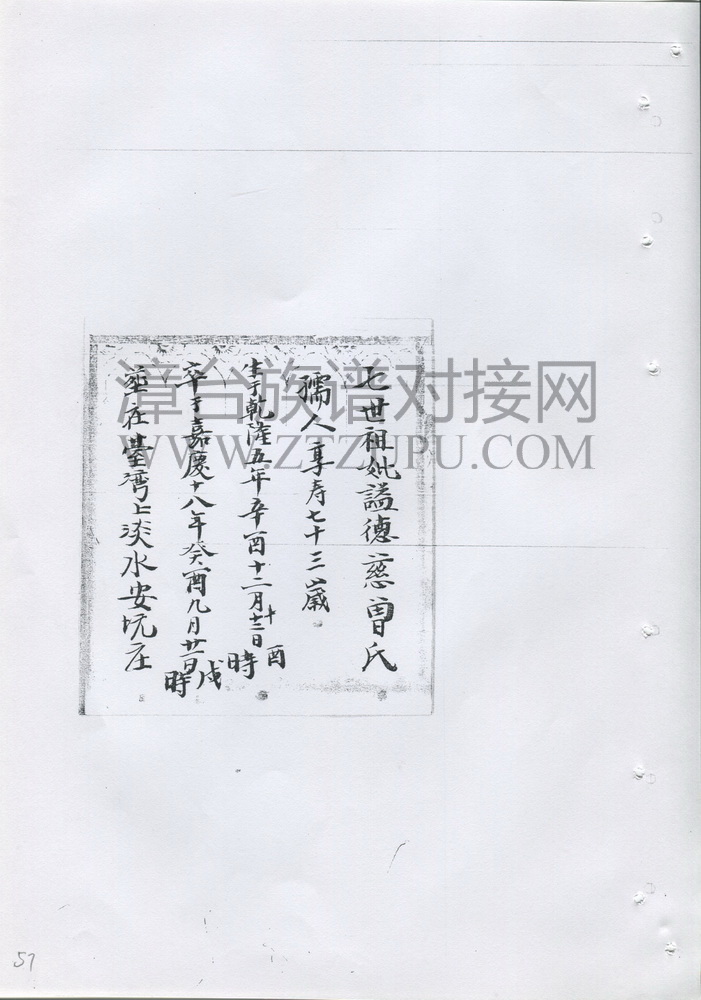 七世祖妣謚德慈曾氏
孺人享寿七十三歲
生于乾隆五年辛酉十二月十三日酉時
卒于嘉慶十八年癸酉九月廿一日戌時
葬在臺湾上淡水安坑庄
漳台族谱对接网
WWW.ZTZUPU.COM
57